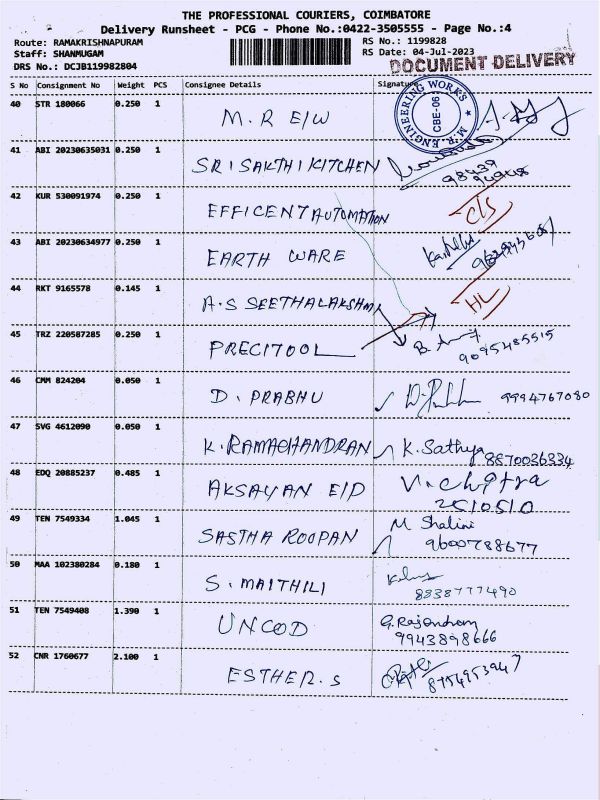 THE PROFESSIONAL COURIERS, COIMBATORE
Delivery Runsheet - PCG - Phone No.:0422-3505555 - Page No.:4
Route: RAMAKRISHNAPURAM RS No.: 1199828
Staff: SHANMUGAM RS Date: 04-Jul-2023
DRS No.: DCJB119982804 DOCUMENT DELIVERY
S No Consignment No Weight PCS Consignee Details Signature
40 STR 180066 0.250 1 M.R E/W M.R. ENGINEERING WORKS CBE-06
41 ABI 20230635031 0.250 1 SRI SAKTHI KITCHEN 98439
42 KUR 530091974 0.250 1 EFFICENT AUTOMATION C/S
43 ABI 20230634977 0.250 1 EARTH WARE
44 RKT 9165578 0.145 1 A.S SEETHALAKSHMI HL
45 TRZ 220587285 0.250 1 PRECITOOL 9095485515
46 CMM 824204 0.050 1 D. PRABHU 9994767080
47 SVG 4612090 0.050 1 K. RAMACHANDRAN K. Sathya
8870036334
48 EDQ 20885237 0.485 1 AKSAYAN E/P V. Chitra
2510510
49 TEN 7549334 1.045 1 SASTHA ROOPAN M Shalini
9600788677
50 MAA 102380284 0.180 1 S. MAITHILI
8838777490
51 TEN 7549408 1.390 1 UNCOD G. Rajendran
9943898666
52 CNR 1760677 2.100 1 ESTHER. S